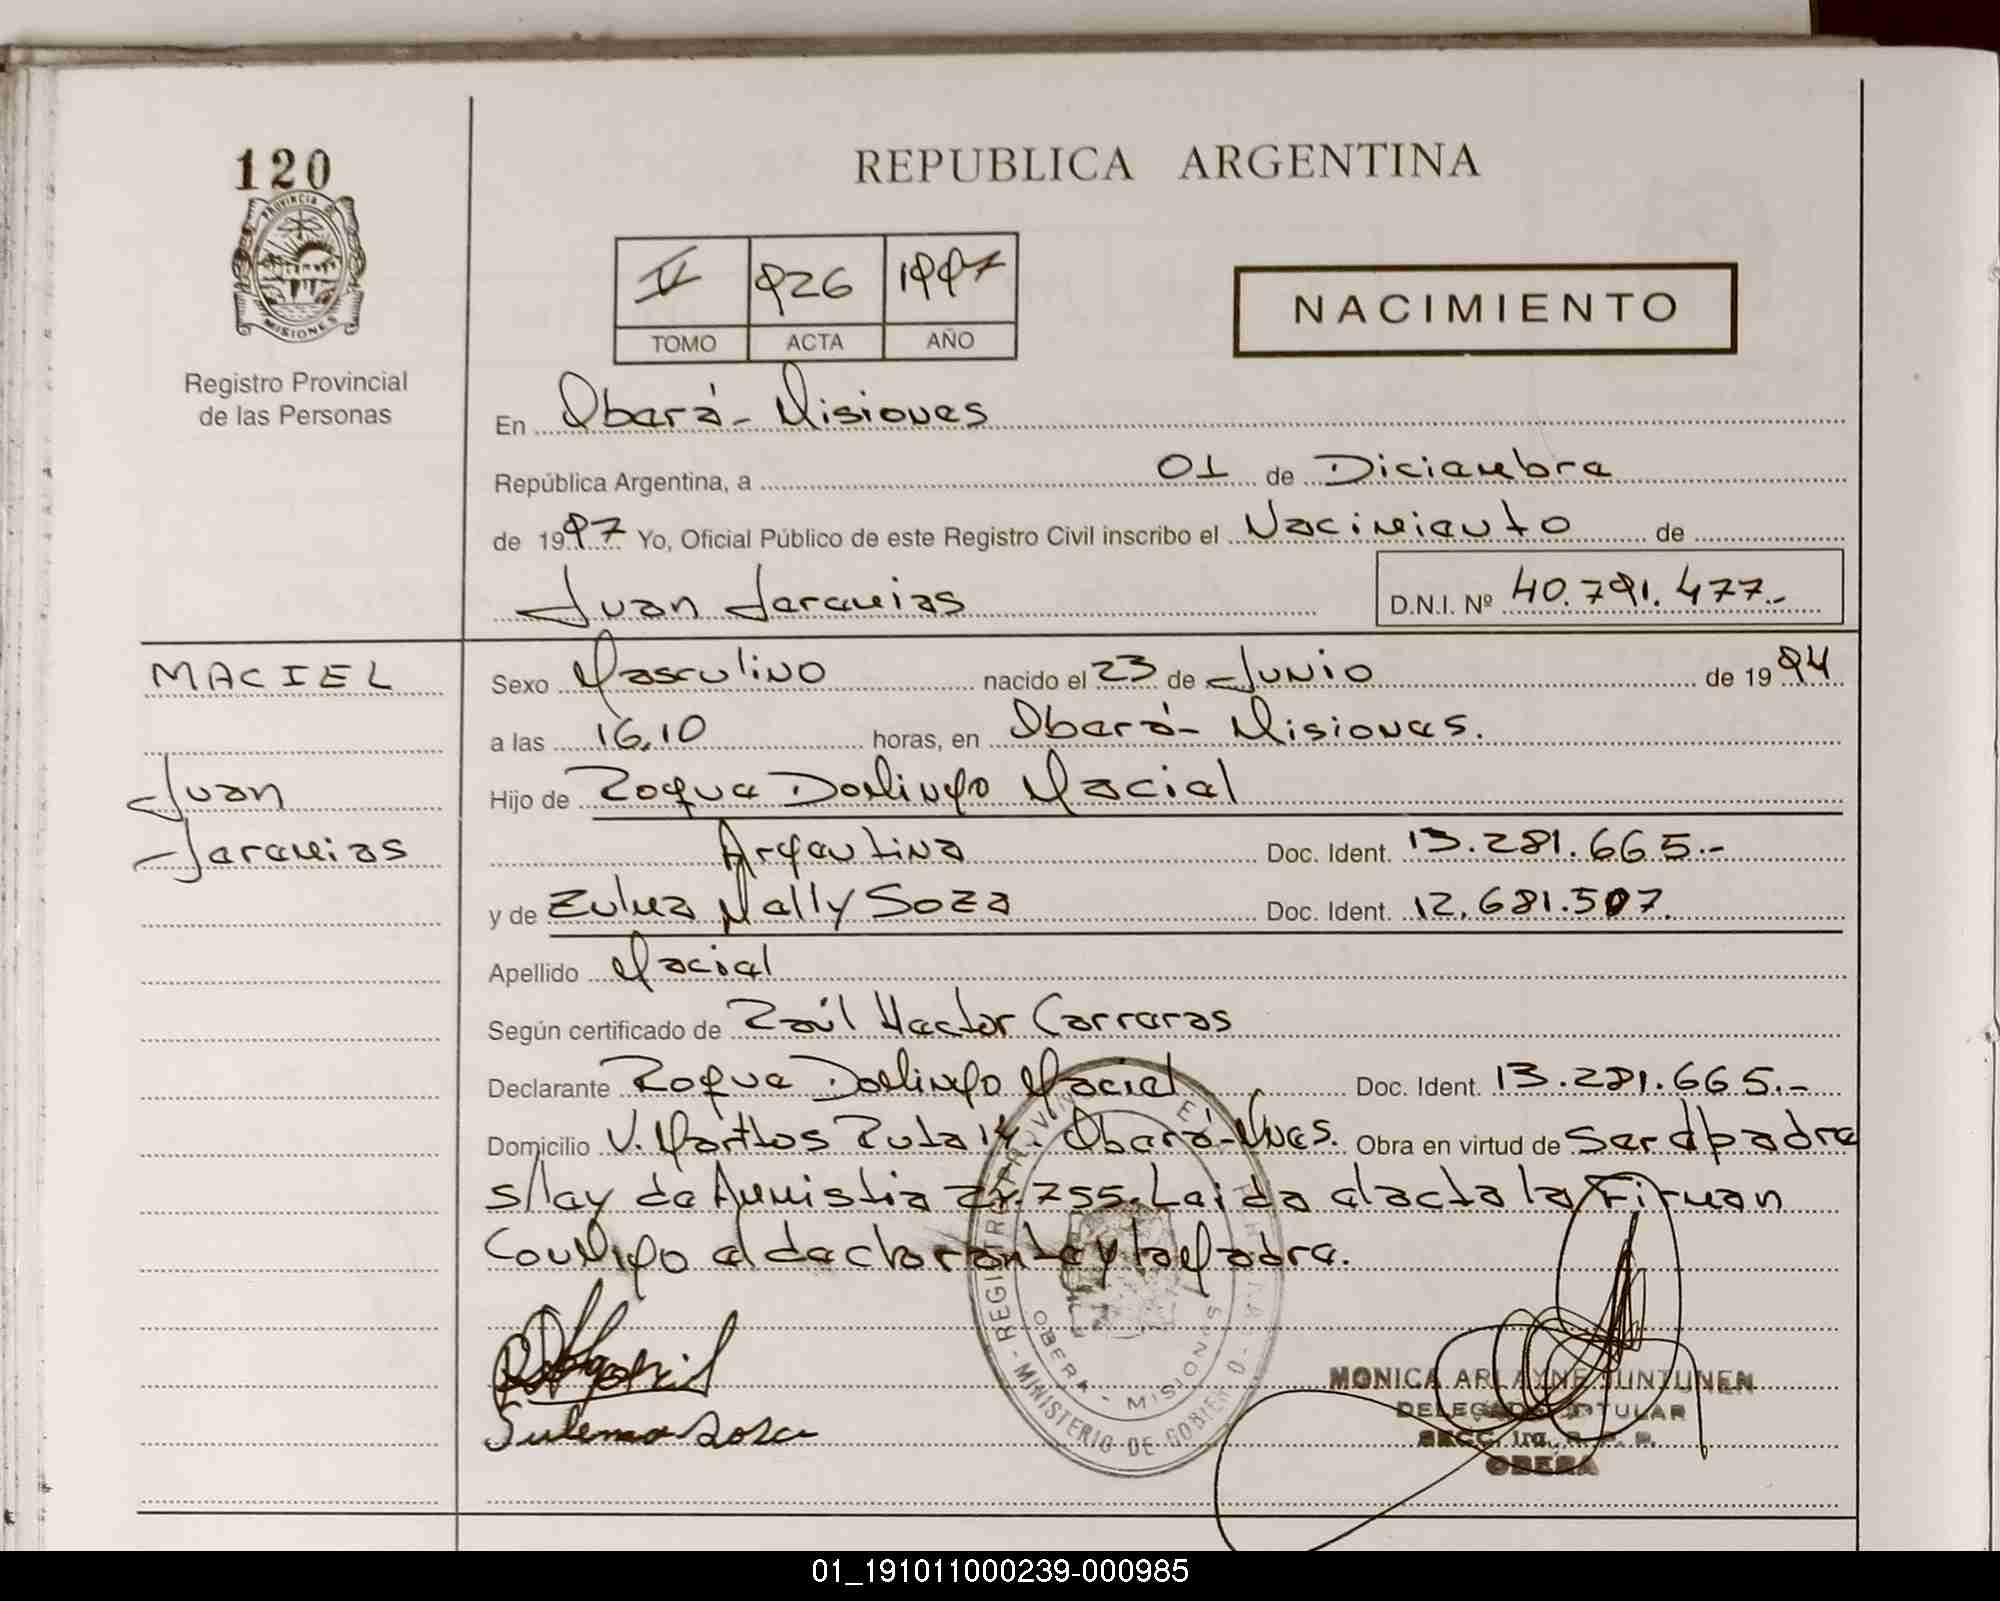 120
PROVINCIA DE
MISIONES
Registro Provincial
de las Personas
REPUBLICA ARGENTINA
V 926 1997
TOMO ACTA AÑO
NACIMIENTO
En Oberá - Misiones
República Argentina, a 01 de Diciembre
de 1997 Yo, Oficial Público de este Registro Civil inscribo el Nacimiento de
Juan Jeremias D.N.I. Nº 40.791.477.-
MACIEL
Juan
Jeremias
Sexo Masculino nacido el 23 de Junio de 1994
a las 16,10 horas, en Oberá - Misiones.
Hijo de Roque Domingo Maciel
Argentina Doc. Ident. 13.281.665.-
y de Zulma Nelly Soza Doc. Ident. 12.681.507.
Apellido Maciel
Según certificado de Raúl Hector Carreras
Declarante Roque Domingo Maciel Doc. Ident. 13.281.665.-
Domicilio V. Martos Ruta 14. Oberá - Mnes. Obra en virtud de Ser el padre
s/ley de Amnistia 24.755. Leida el acta la Firman
Conmigo el declarante y la Madre.
Sulema Soza
REGISTRO PROVIN
OBERA - MISIONES
MINISTERIO DE GOBIERNO
MONICA ARLAYNE TUNTUNEN
DELEGADO TITULAR
SECC. 1ra. R. P. P.
OBERA
01_191011000239-000985